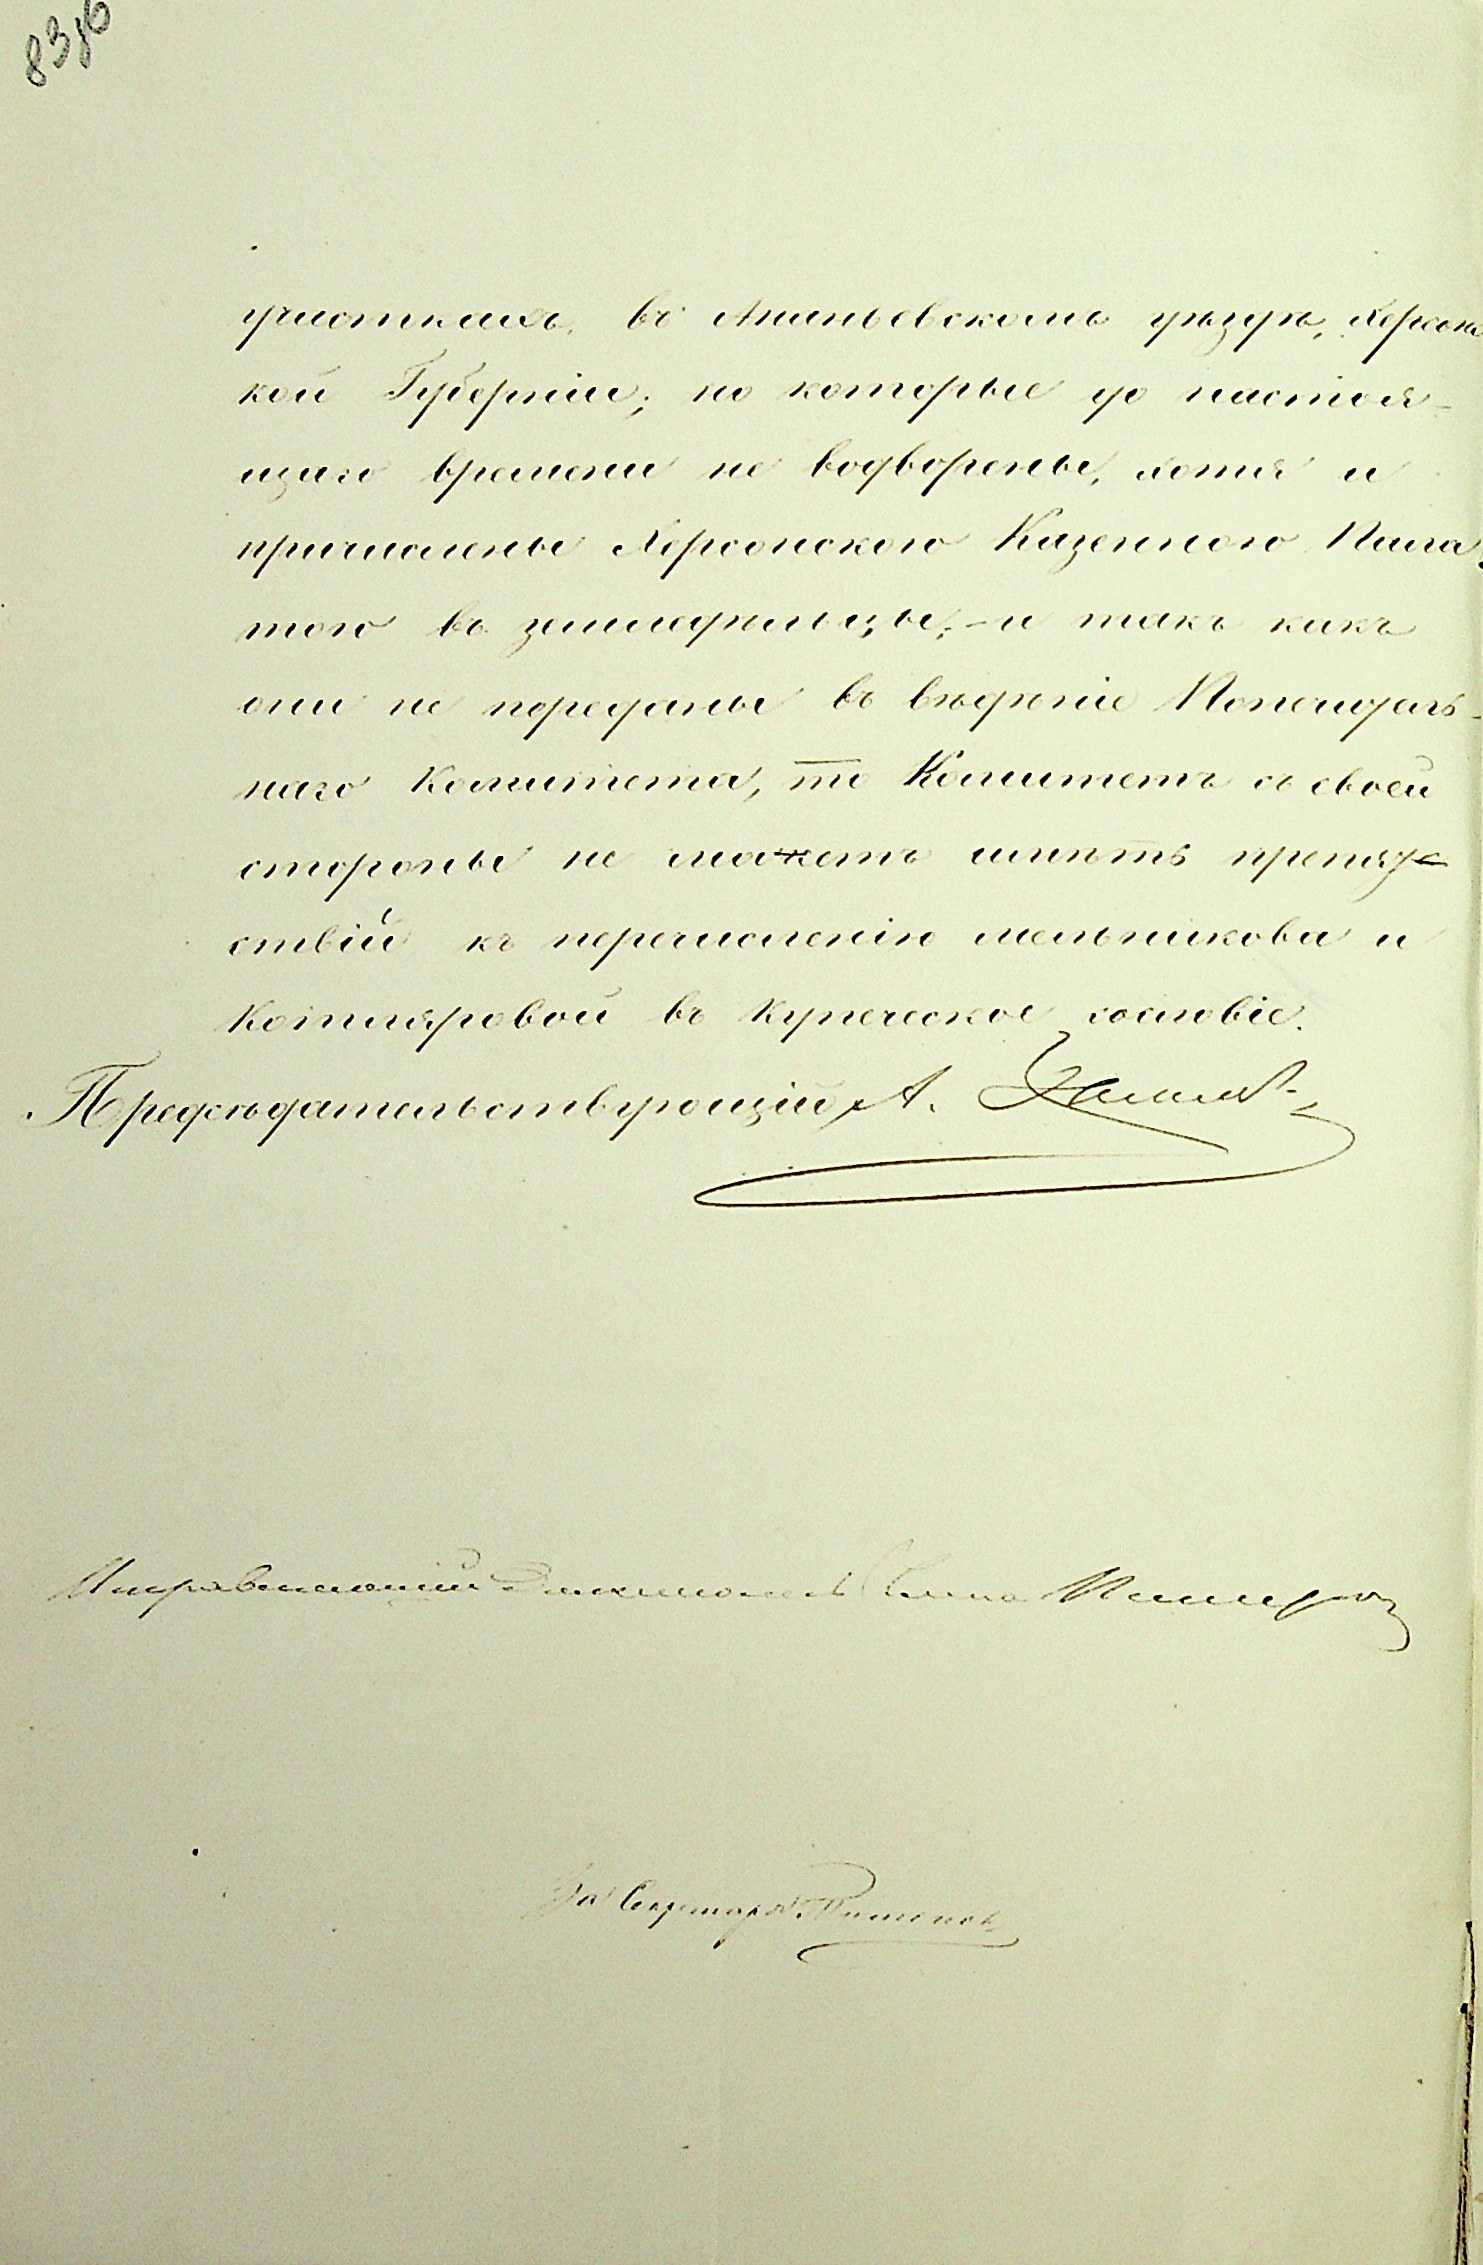 83об
участкахъ, въ Ананьевскомъ уѣздѣ, Херсонс
кой Губерніи; но которые до настоя-
щаго времени не водворены, хотя и
причислены Херсонскою Казенною Пала
тою въ земледѣльцы; - и такъ какъ
они не переданы въ вѣдѣніе Попечитель-
наго Комитета, то Комитетъ съ своей
стороны не можетъ имѣть препят-
ствій къ перечисленію Мельникова и
Котляровой въ купеческое сословіе.
Предсѣдательствующій А.
Управляющій
За Секретаря